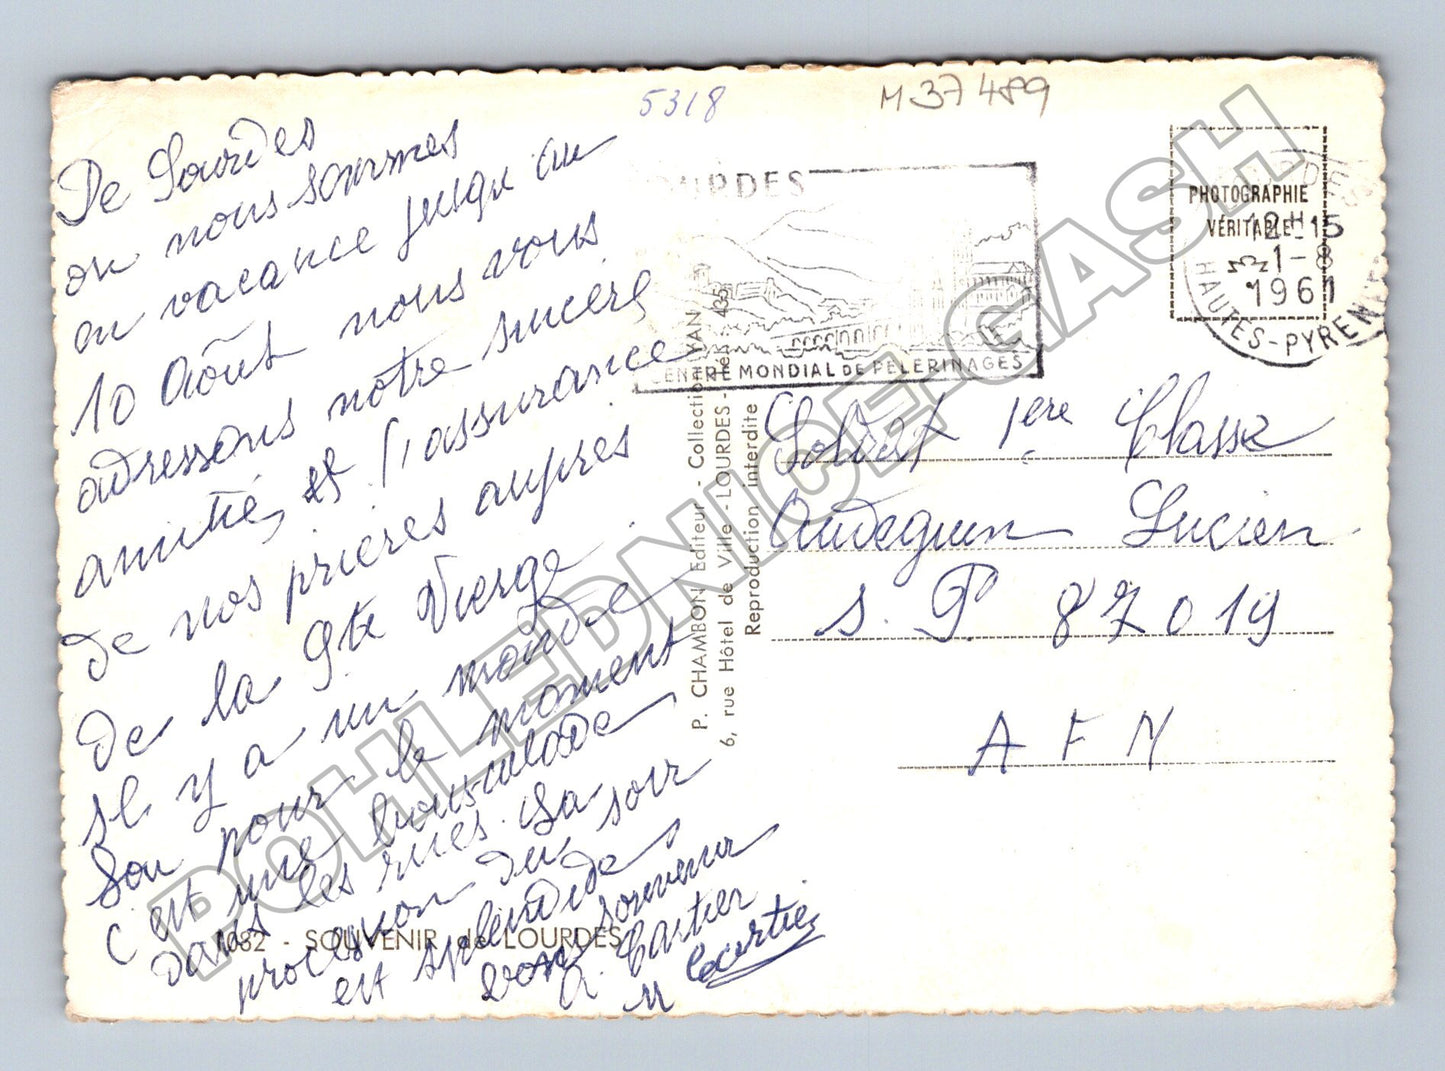 5318
M 37 489
De Lourdes
on nous sommes
en vacance jusqu'au
10 Août nous vous
adressons notre sincère
amitié, et l'assurance
de nos prières auprès
de la Ste Vierge
il y a un monde
fou pour le moment
c'est une bousculade
dans les rues. La
procession du soir
est splendide
bons souvenir
Cartier
1082 - SOUVENIR de LOURDES
P. CHAMBON Editeur - Collection YAN
6, rue Hôtel de Ville - LOURDES - Tél. : 4.35
Reproduction interdite
LOURDES
CENTRE MONDIAL DE PELERINAGES
PHOTOGRAPHIE
VÉRITABLE
LOURDES
12H15
1-8
1961
HAUTES-PYRENEES
Soldat 1ere Classe
Audeguin Lucien
S. P. 87019
A F N
POHLEDNICE-GASH